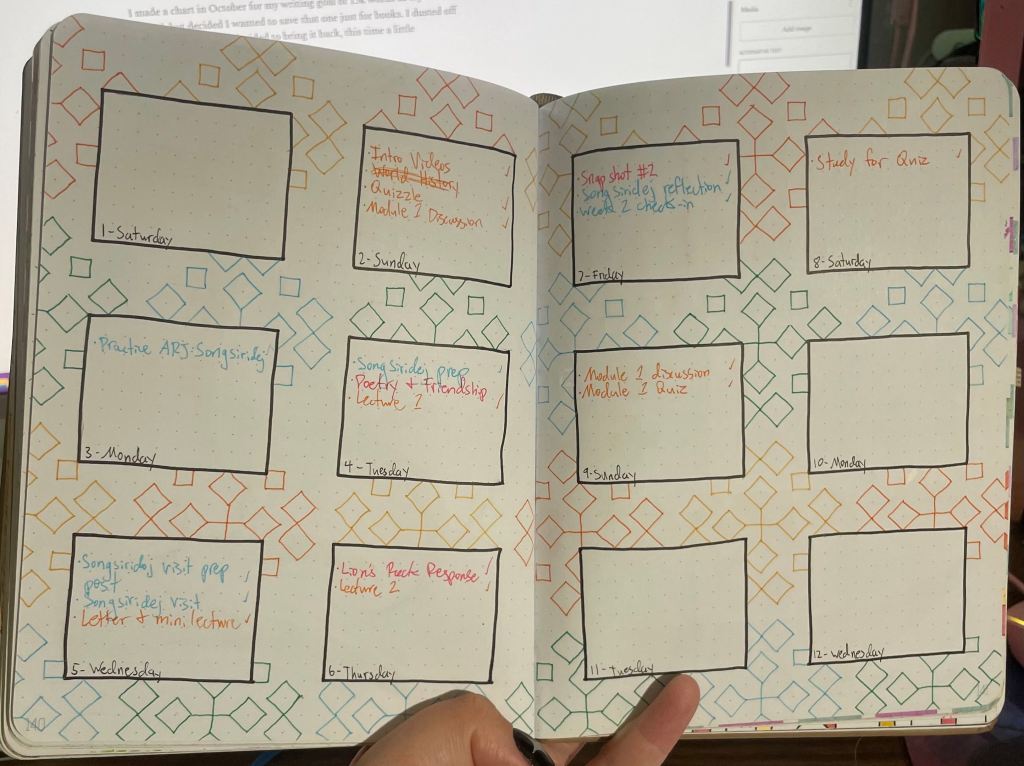 I made a chart in October for my writing goal of
decided I wanted to save that one just for books. I dusted off
to bring it back, this time a little
Media
Add image
1-Saturday
· Intro Videos
World History
· Quizzle
· Module 1 Discussion
2-Sunday
· Practive ARJ-Songsiridej
3-Monday
· Songsiridej prep
· Poetry + Friendship
· Lecture 1
4-Tuesday
· Songsiridej visit prep
post
· Songsiridej visit
· Letter + mini lecture
5-Wednesday
· Lion's Response
· Lecture 2
6-Thursday
140
· Snapshot #2
· Songsiridej reflection
· Week 2 check-in
7-Friday
· Study for Quiz
8-Saturday
· Module 1 discussion
· Module 1 Quiz
9-Sunday
10-Monday
11-Tuesday
12-Wednesday